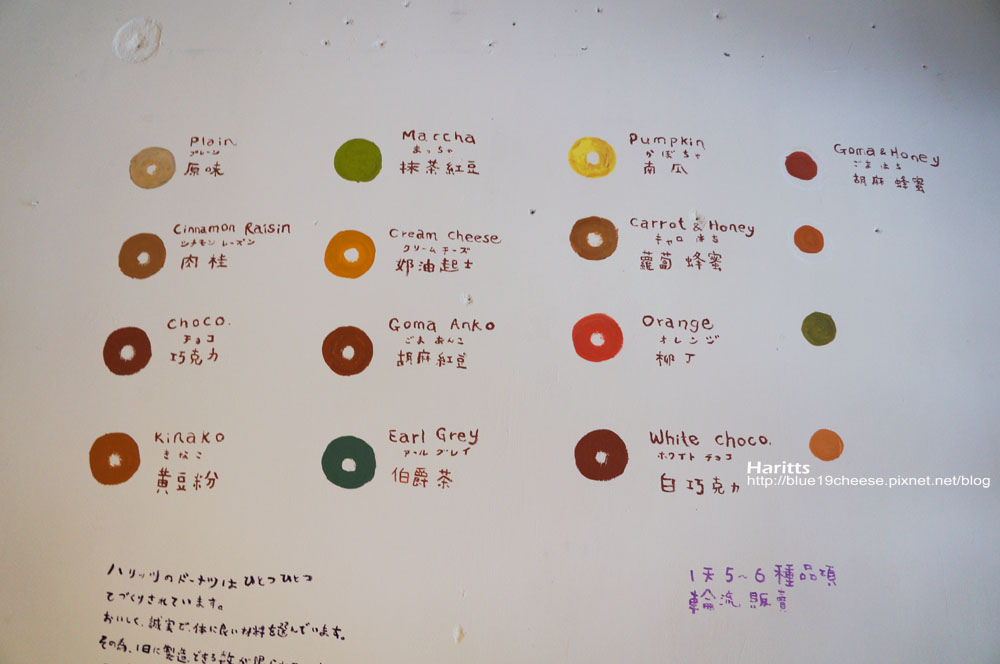 Plain
プレーン
原味
Maccha
まっちゃ
抹茶紅豆
Pumpkin
かぼちゃ
南瓜
Goma & Honey
ごま はち
胡麻 蜂蜜
Cinnamon Raisin
シナモン レーズン
肉桂
Cream cheese
クリーム チーズ
奶油起士
Carrot & Honey
キャロ はち
蘿蔔 蜂蜜
Choco.
チョコ
巧克力
Goma Anko
ごま あんこ
胡麻紅豆
Orange
オレンジ
柳丁
Kinako
きなこ
黃豆粉
Earl Grey
アール グレイ
伯爵茶
White choco.
ホワイト チョコ
白巧克力
Haritts
http://blue19cheese.pixnet.net/blog
ハリッツのドーナツは ひとつひとつ
てづくりされています。
おいしく、誠実で、体に良い材料を選んでいます。
その為、1日に製造できる数が限
1天5~6種品項
輪流販賣